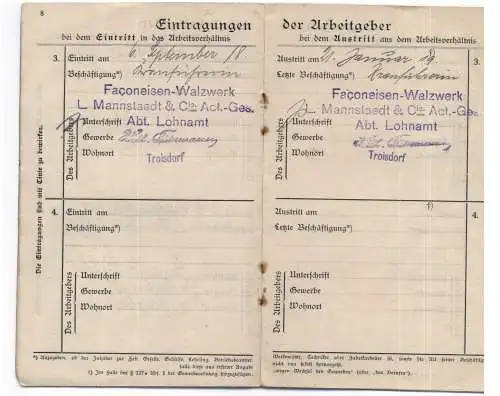 8
Eintragungen
bei dem Eintritt in das Arbeitsverhältnis
3. Eintritt am 6. September 18
Beschäftigung*)
Façoneisen-Walzwerk
L. Mannstaedt & Cie Act.-Ges.
Abt. Lohnamt
Des Arbeitgebers
Unterschrift
Gewerbe
Wohnort
Troisdorf
4. Eintritt am
Beschäftigung*)
Des Arbeitgebers
Unterschrift
Gewerbe
Wohnort
Die Eintragungen sind mit Tinte zu bewirken.
*) Anzugeben, ob der Inhaber zur Zeit Geselle, Gehilfe, Lehrling, Betriebsbeamter
falls diese aus erfolgter Angabe
der Arbeitgeber
bei dem Austritt aus dem Arbeitsverhältnis
Austritt am 21. Januar 19 3.
Letzte Beschäftigung*)
Façoneisen-Walzwerk
L. Mannstaedt & Cie Act.-Ges.
Abt. Lohnamt
Des Arbeitgebers
Unterschrift
Gewerbe
Wohnort
Troisdorf
Austritt am †) 4.
Letzte Beschäftigung*)
Des Arbeitgebers
Unterschrift
Gewerbe
Wohnort
Werkmeister, Techniker oder Fabrikarbeiter ist, sowie die Art seiner Beschäftigung